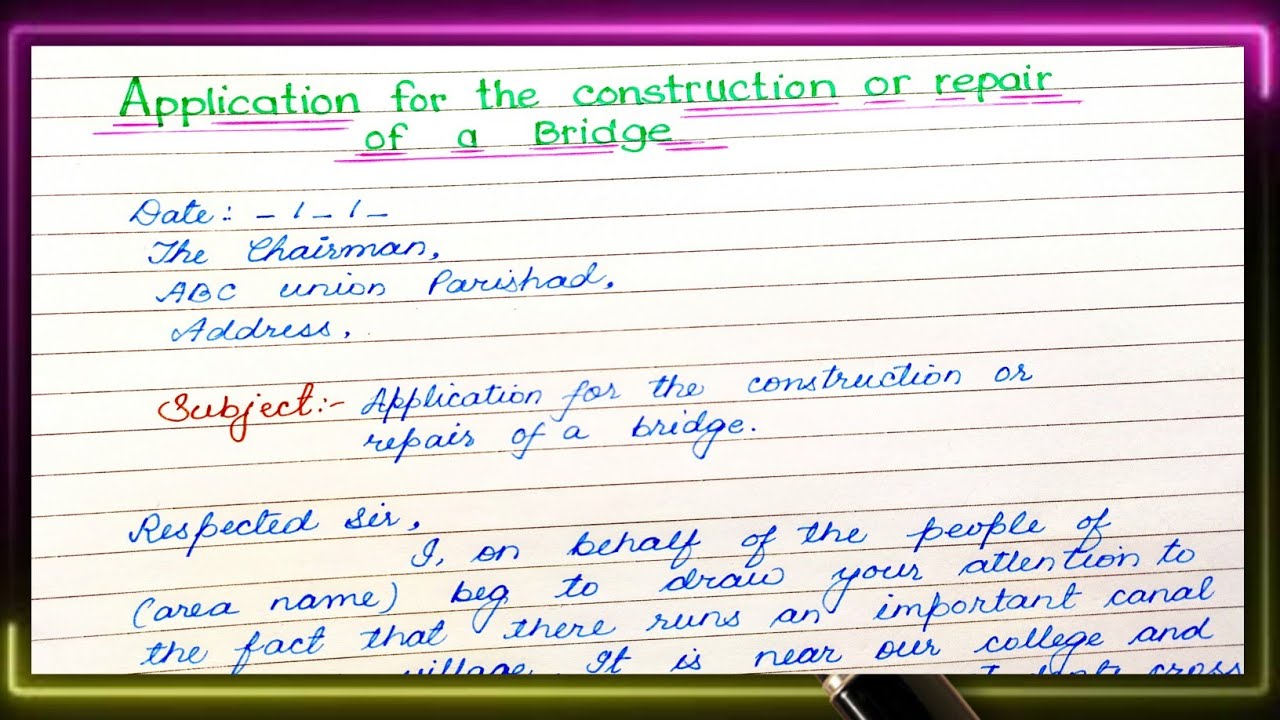 Application for the construction or repair
of a Bridge
Date: - / - / -
The Chairman,
ABC union Parishad,
Address,
Subject:- Application for the construction or
repair of a bridge.
Respected Sir,
I, on behalf of the people of
(area name) beg to draw your attention to
the fact that there runs an important canal
village. It is near our college and
cross